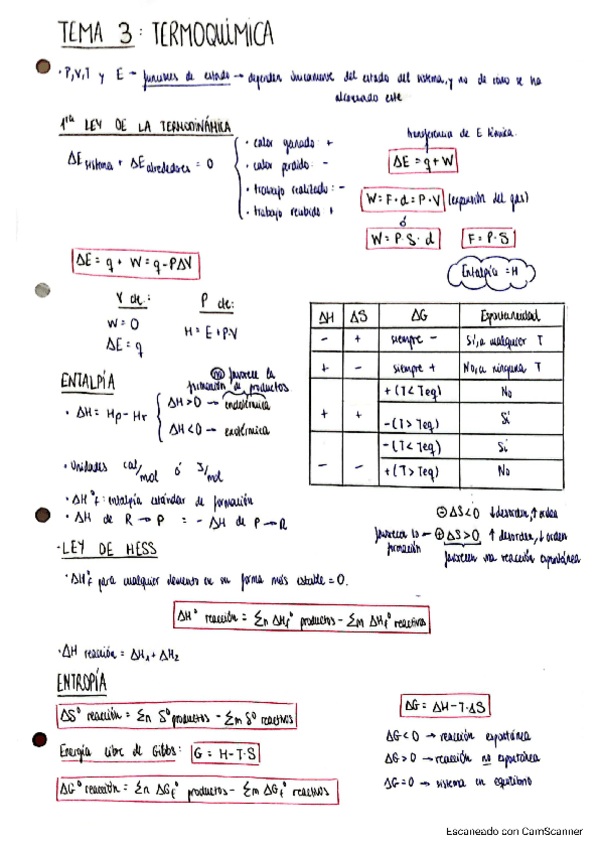 TEMA 3: TERMOQUÍMICA
· P,V,T y E → funciones de estado → dependen únicamente del estado del sistema, y no de cómo se ha
alcanzado este
1ra LEY DE LA TERMODINÁMICA
ΔE sistema + ΔE alrededores = 0
· calor ganado: +
· calor perdido: -
· trabajo realizado: -
· trabajo recibido +
transferencia de E térmica.
ΔE = q + W
W = F · d = P · V (expansión del gas)
ó
W = P · S · d
F = P · S
ΔE = q + W = q - PΔV
Entalpía = H
V cte:
W = 0
ΔE = q
P cte:
H = E + P·V
ΔH ΔS ΔG Espontaneidad
- + siempre - Sí, a cualquier T
+ - siempre + No, a ninguna T
+ + +(T < Teq) No
-(T > Teq) Sí
- - -(T < Teq) Sí
+(T > Teq) No
ENTALPÍA
no favorece la
formación de productos
· ΔH = Hp - Hr
ΔH > 0 → endotérmica
ΔH < 0 → exotérmica
· Unidades cal/mol ó J/mol
· ΔH°f: entalpía estándar de formación
· ΔH de R → P = - ΔH de P → R
⊖ ΔS < 0 ↓ desorden, ↑ orden
favorece la formación ← ⊕ ΔS > 0 ↑ desorden, ↓ orden
favorecen una reacción espontánea
· LEY DE HESS
· ΔH°f para cualquier elemento en su forma más estable = 0.
ΔH° reacción = Σn ΔHf° productos - Σm ΔHf° reactivos
· ΔH reacción = ΔH1 + ΔH2
ENTROPÍA
ΔS° reacción = Σn S° productos - Σm S° reactivos
Energía libre de Gibbs: G = H - T · S
ΔG° reacción = Σn ΔGf° productos - Σm ΔGf° reactivos
ΔG = ΔH - T · ΔS
ΔG < 0 → reacción espontánea
ΔG > 0 → reacción no espontánea
ΔG = 0 → sistema en equilibrio
Escaneado con CamScanner